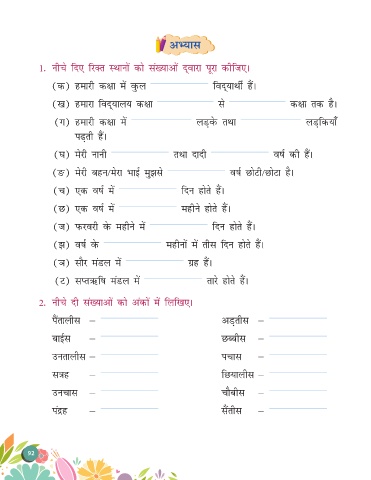 अभ्यास
1. नीचे दिए रिक्त स्थानों को संख्याओं द्वारा पूरा कीजिए।
(क) हमारी कक्षा में कुल ____________ विद्यार्थी हैं।
(ख) हमारा विद्यालय कक्षा ____________ से ____________ कक्षा तक है।
(ग) हमारी कक्षा में ____________ लड़के तथा ____________ लड़कियाँ
पढ़ती हैं।
(घ) मेरी नानी ____________ तथा दादी ____________ वर्ष की हैं।
(ङ) मेरी बहन/मेरा भाई मुझसे ____________ वर्ष छोटी/छोटा है।
(च) एक वर्ष में ____________ दिन होते हैं।
(छ) एक वर्ष में ____________ महीने होते हैं।
(ज) फरवरी के महीने में ____________ दिन होते हैं।
(झ) वर्ष के ____________ महीनों में तीस दिन होते हैं।
(ञ) सौर मंडल में ____________ ग्रह हैं।
(ट) सप्तऋषि मंडल में ____________ तारे होते हैं।
2. नीचे दी संख्याओं को अंकों में लिखिए।
पैंतालीस – ____________ अड़तीस – ____________
बाईस – ____________ छब्बीस – ____________
उनतालीस – ____________ पचास – ____________
सत्रह – ____________ छियालीस – ____________
उनचास – ____________ चौबीस – ____________
पंद्रह – ____________ सैंतीस – ____________
92